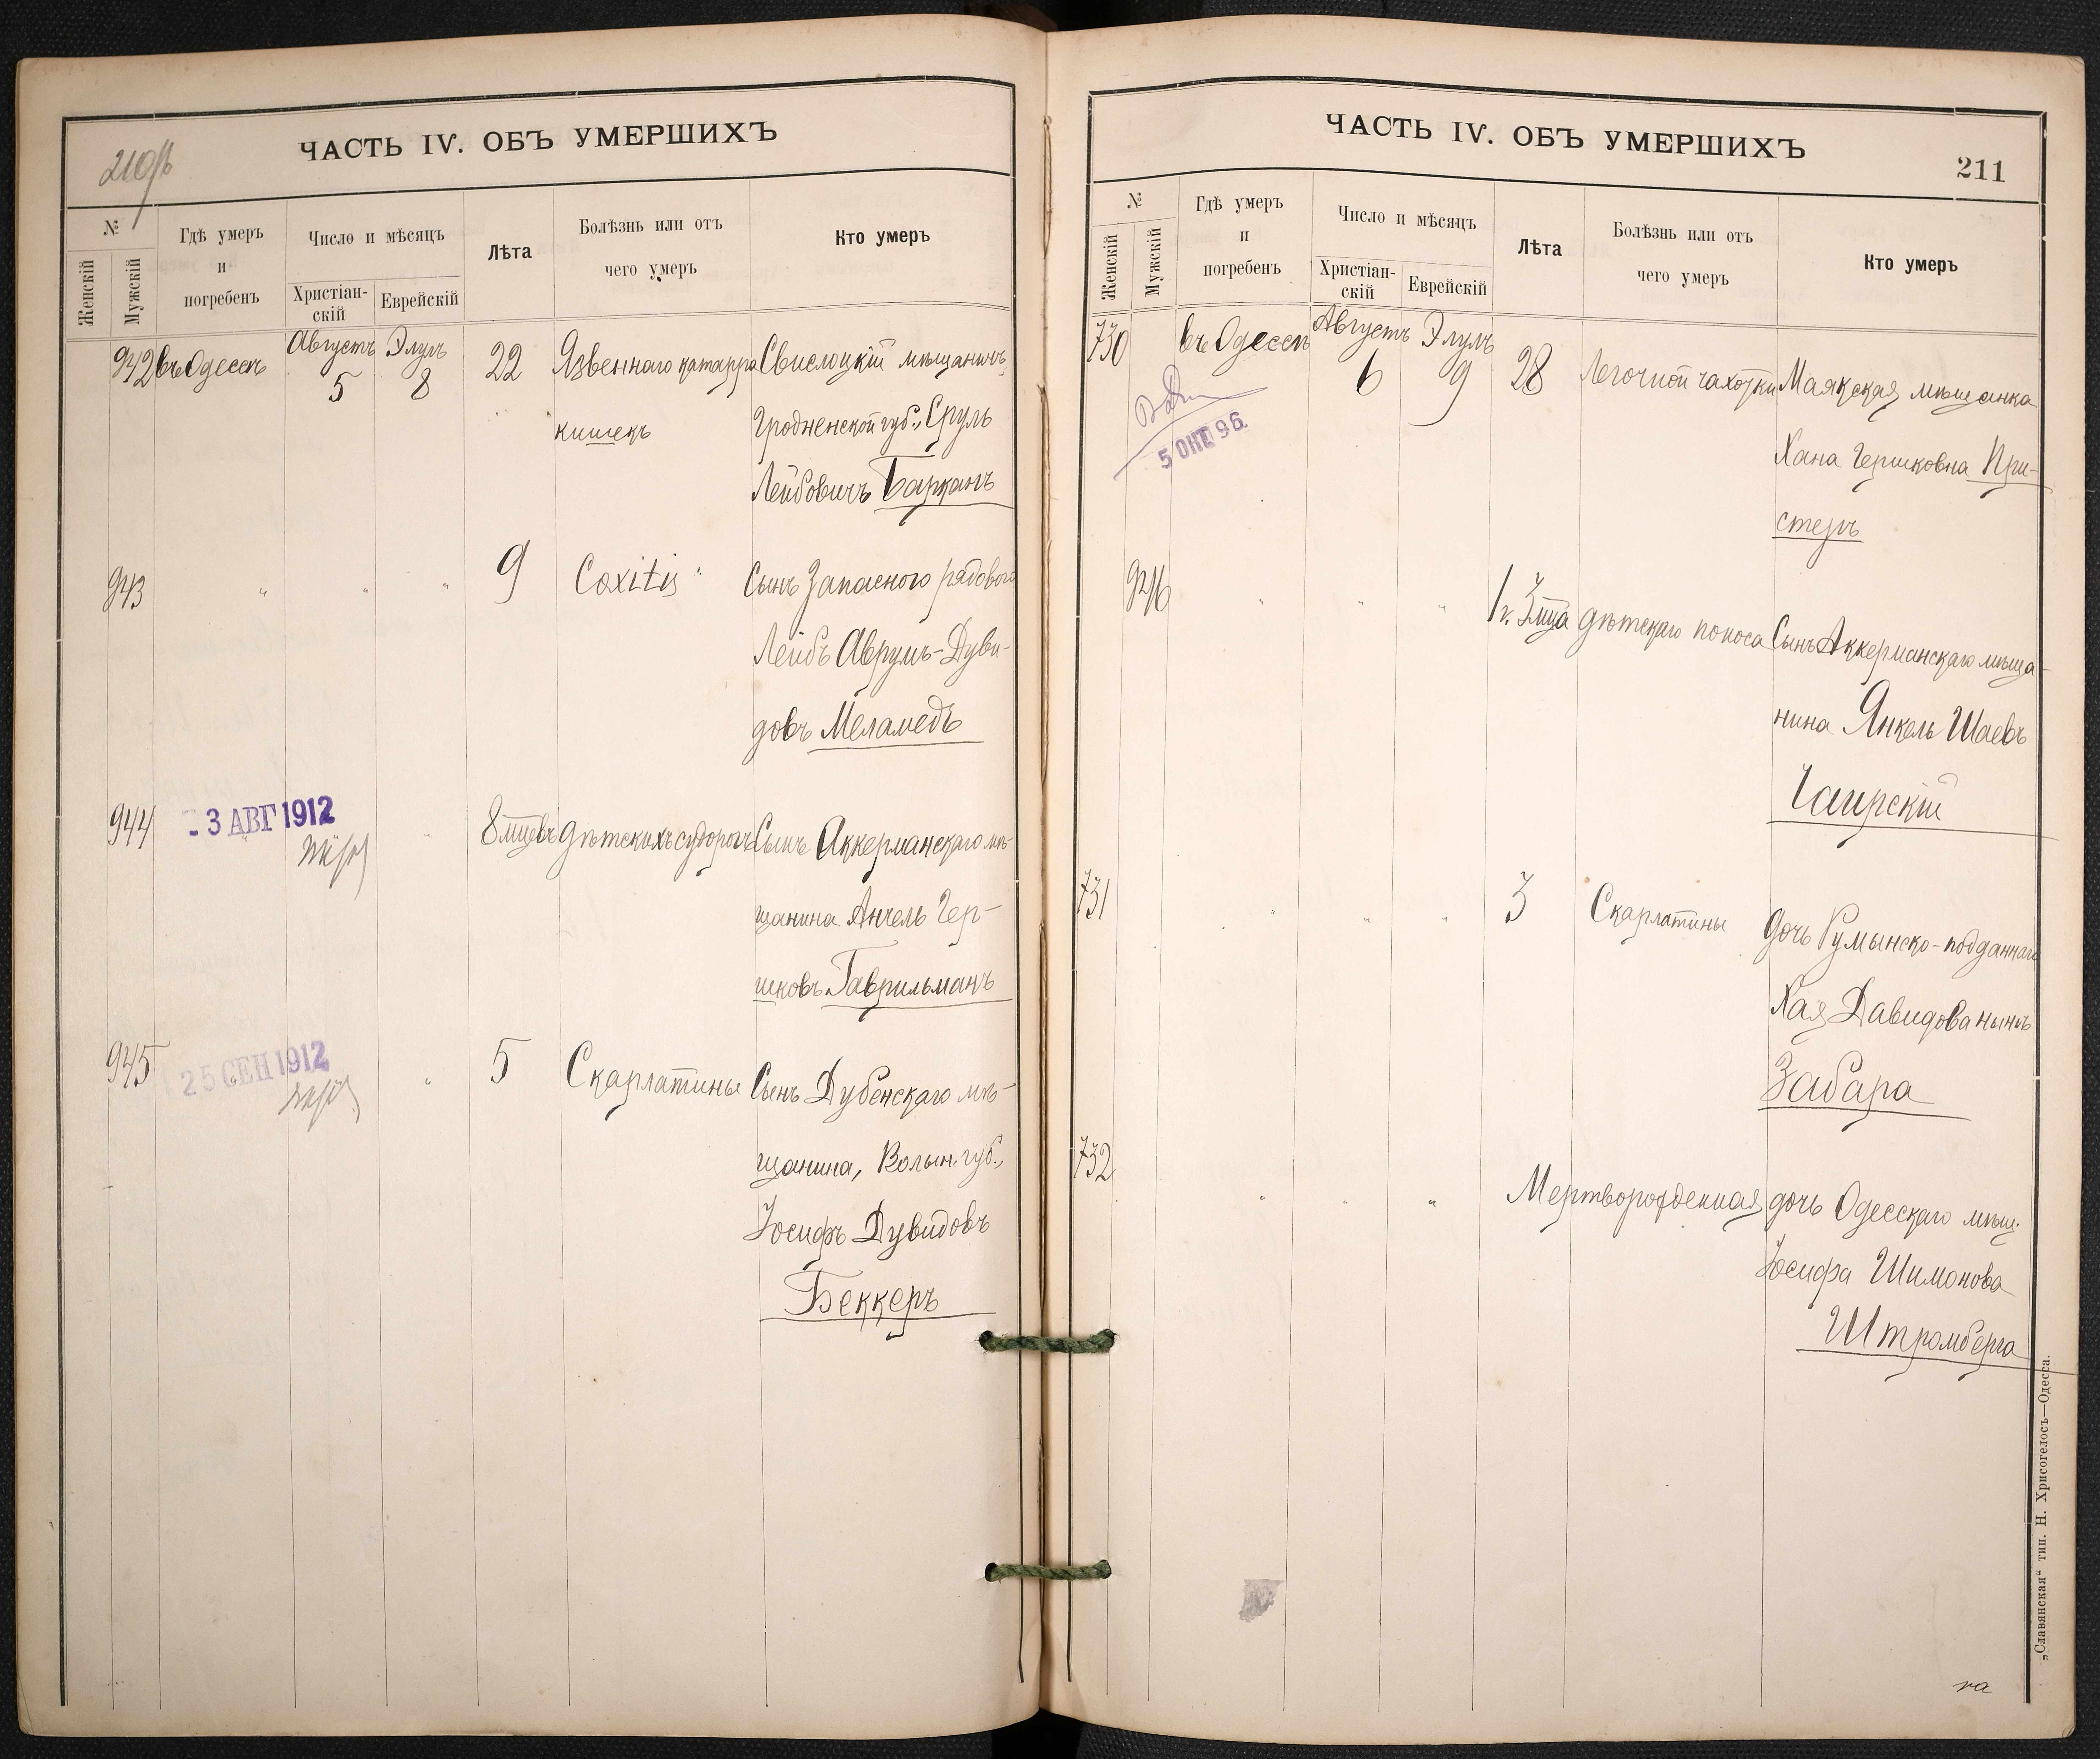 210
ЧАСТЬ IV. ОБЪ УМЕРШИХЪ
№
Женскій
Мужскій
Гдѣ умеръ
и
погребенъ
Число и мѣсяцъ
Христіан-
скій
Еврейскій
Лѣта
Болѣзнь или отъ
чего умеръ
Кто умеръ
942 въ Одессѣ Августъ 5 Элулъ 8 22 Язвеннаго катарра Свислоцкій мѣщанинъ,
кишекъ Гродненской губ., Сруль
Лейбовичъ Барканъ
943 " " " 9 Coxitis " Сынъ Запасного рядового
Лейбъ Аврумъ-Дуви-
довъ Меламедъ
944 3 АВГ 1912 " 8 мцевъ дѣтскихъ судорогъ Сынъ Аккерманскаго мѣ-
щанина Анчель Гер-
шковъ Гаврильманъ
945 25 СЕН 1912 " 5 Скарлатины Сынъ Дубенскаго мѣ-
щанина, Волын. губ.,
Іосифъ Дувидовъ
Беккеръ
ЧАСТЬ IV. ОБЪ УМЕРШИХЪ
211
№
Женскій
Мужскій
Гдѣ умеръ
и
погребенъ
Число и мѣсяцъ
Христіан-
скій
Еврейскій
Лѣта
Болѣзнь или отъ
чего умеръ
Кто умеръ
730 въ Одессѣ Августъ 6 Элулъ 9 28 Легочной чахотки Маякская мѣщанка
5 ОКТ 96.
Хана Гершковна При-
стеръ
946 " " " 1 г. 3 мца дѣтскаго поноса Сынъ Аккерманскаго мѣща-
нина Янкель Шаевъ
Чаирскій
731 " " " 3 Скарлатины дочь Румынско-подданнаго
Хая Давидова нынъ
Забара
732 " " " Мертворожденная дочь Одесскаго мѣщ.
Іосифа Шимонова
Штромберга
„Славянская“ тип. Н. Хрисогелосъ—Одесса.